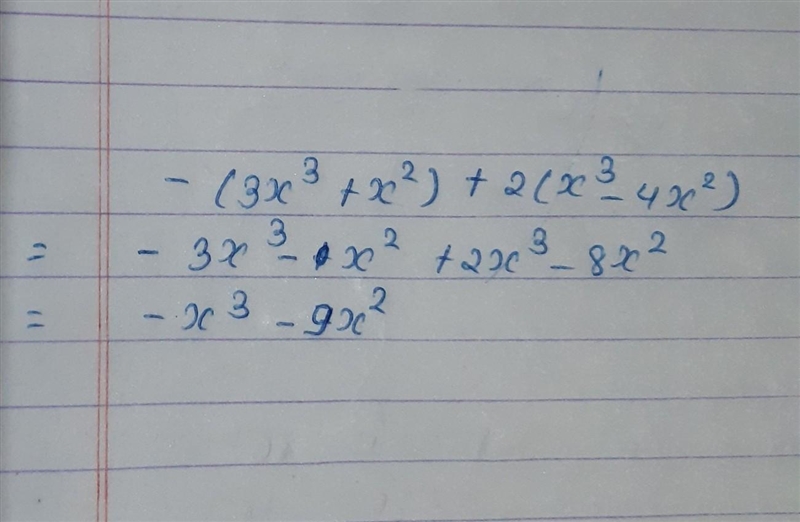 - (3x³ + x²) + 2(x³ - 4x²)
= - 3x³ - 1x² + 2x³ - 8x²
= - x³ - 9x²